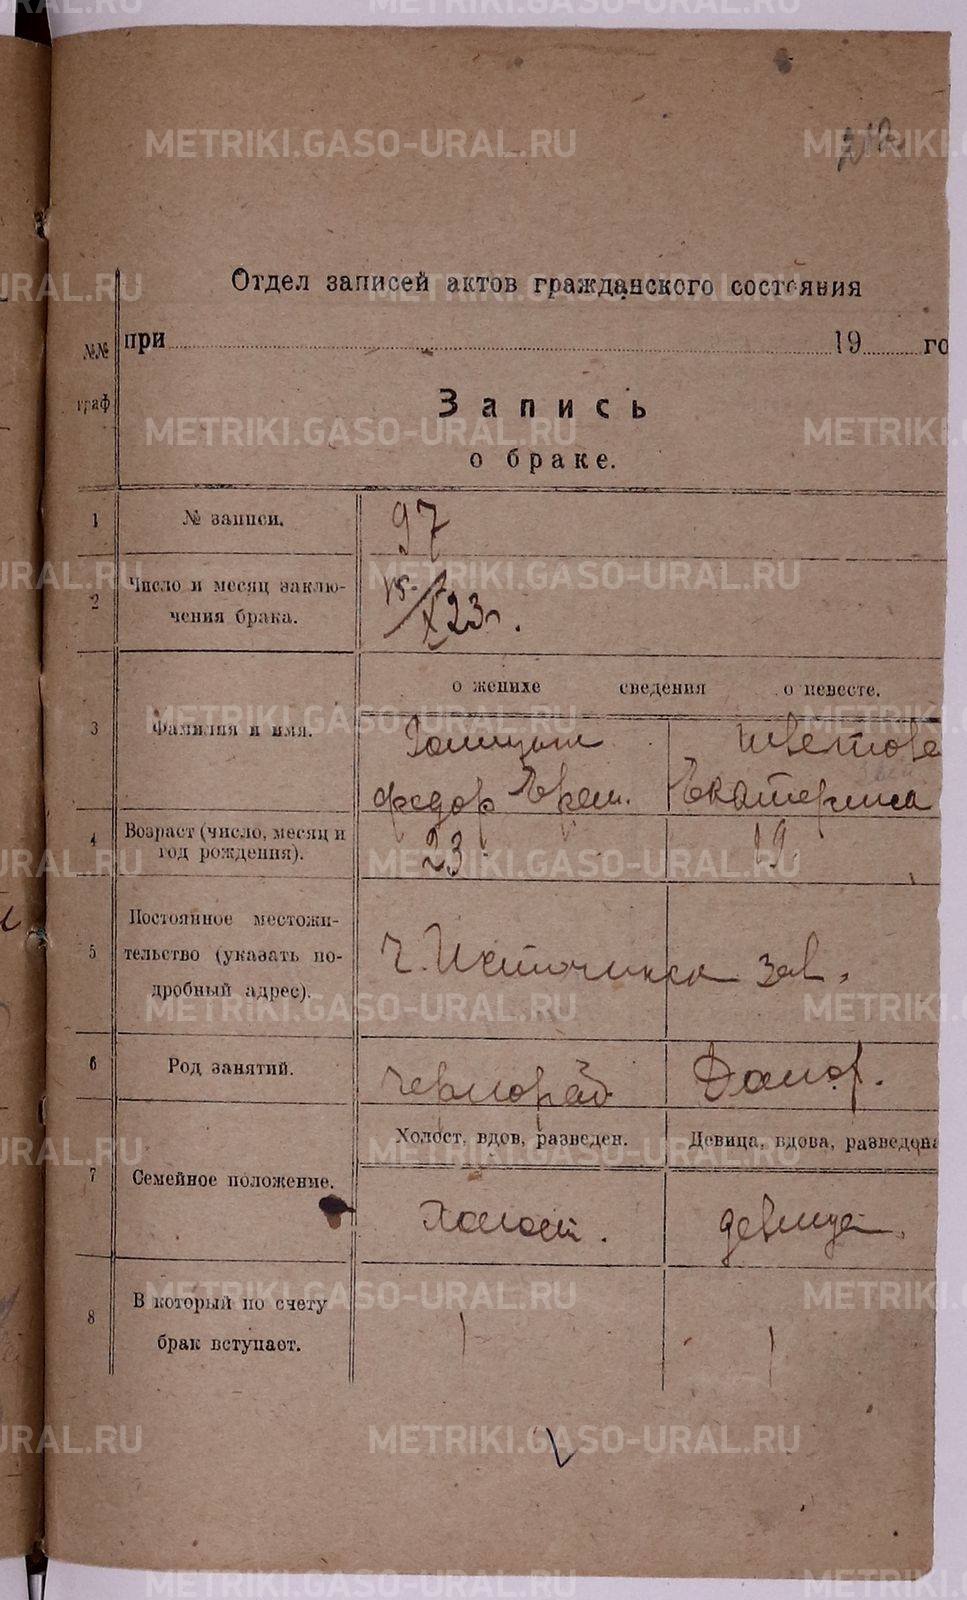 212
Отдел записей актов гражданского состояния
при 19 го
№№ граф
Запись
о браке.
1 № записи. 97
2 Число и месяц заключения брака. 15/X 23 г.
о женихе сведения о невесте.
3 Фамилия и имя.
Федор Ерем. Екатерина
4 Возраст (число, месяц и год рождения). 23 19
5 Постоянное местожительство (указать подробный адрес). зав.
6 Род занятий. чернораб. Домох.
Холост, вдов, разведен. Девица, вдова, разведена
7 Семейное положение. Холост. девица.
8 В который по счету брак вступает. 1 1
METRIKI.GASO-URAL.RU